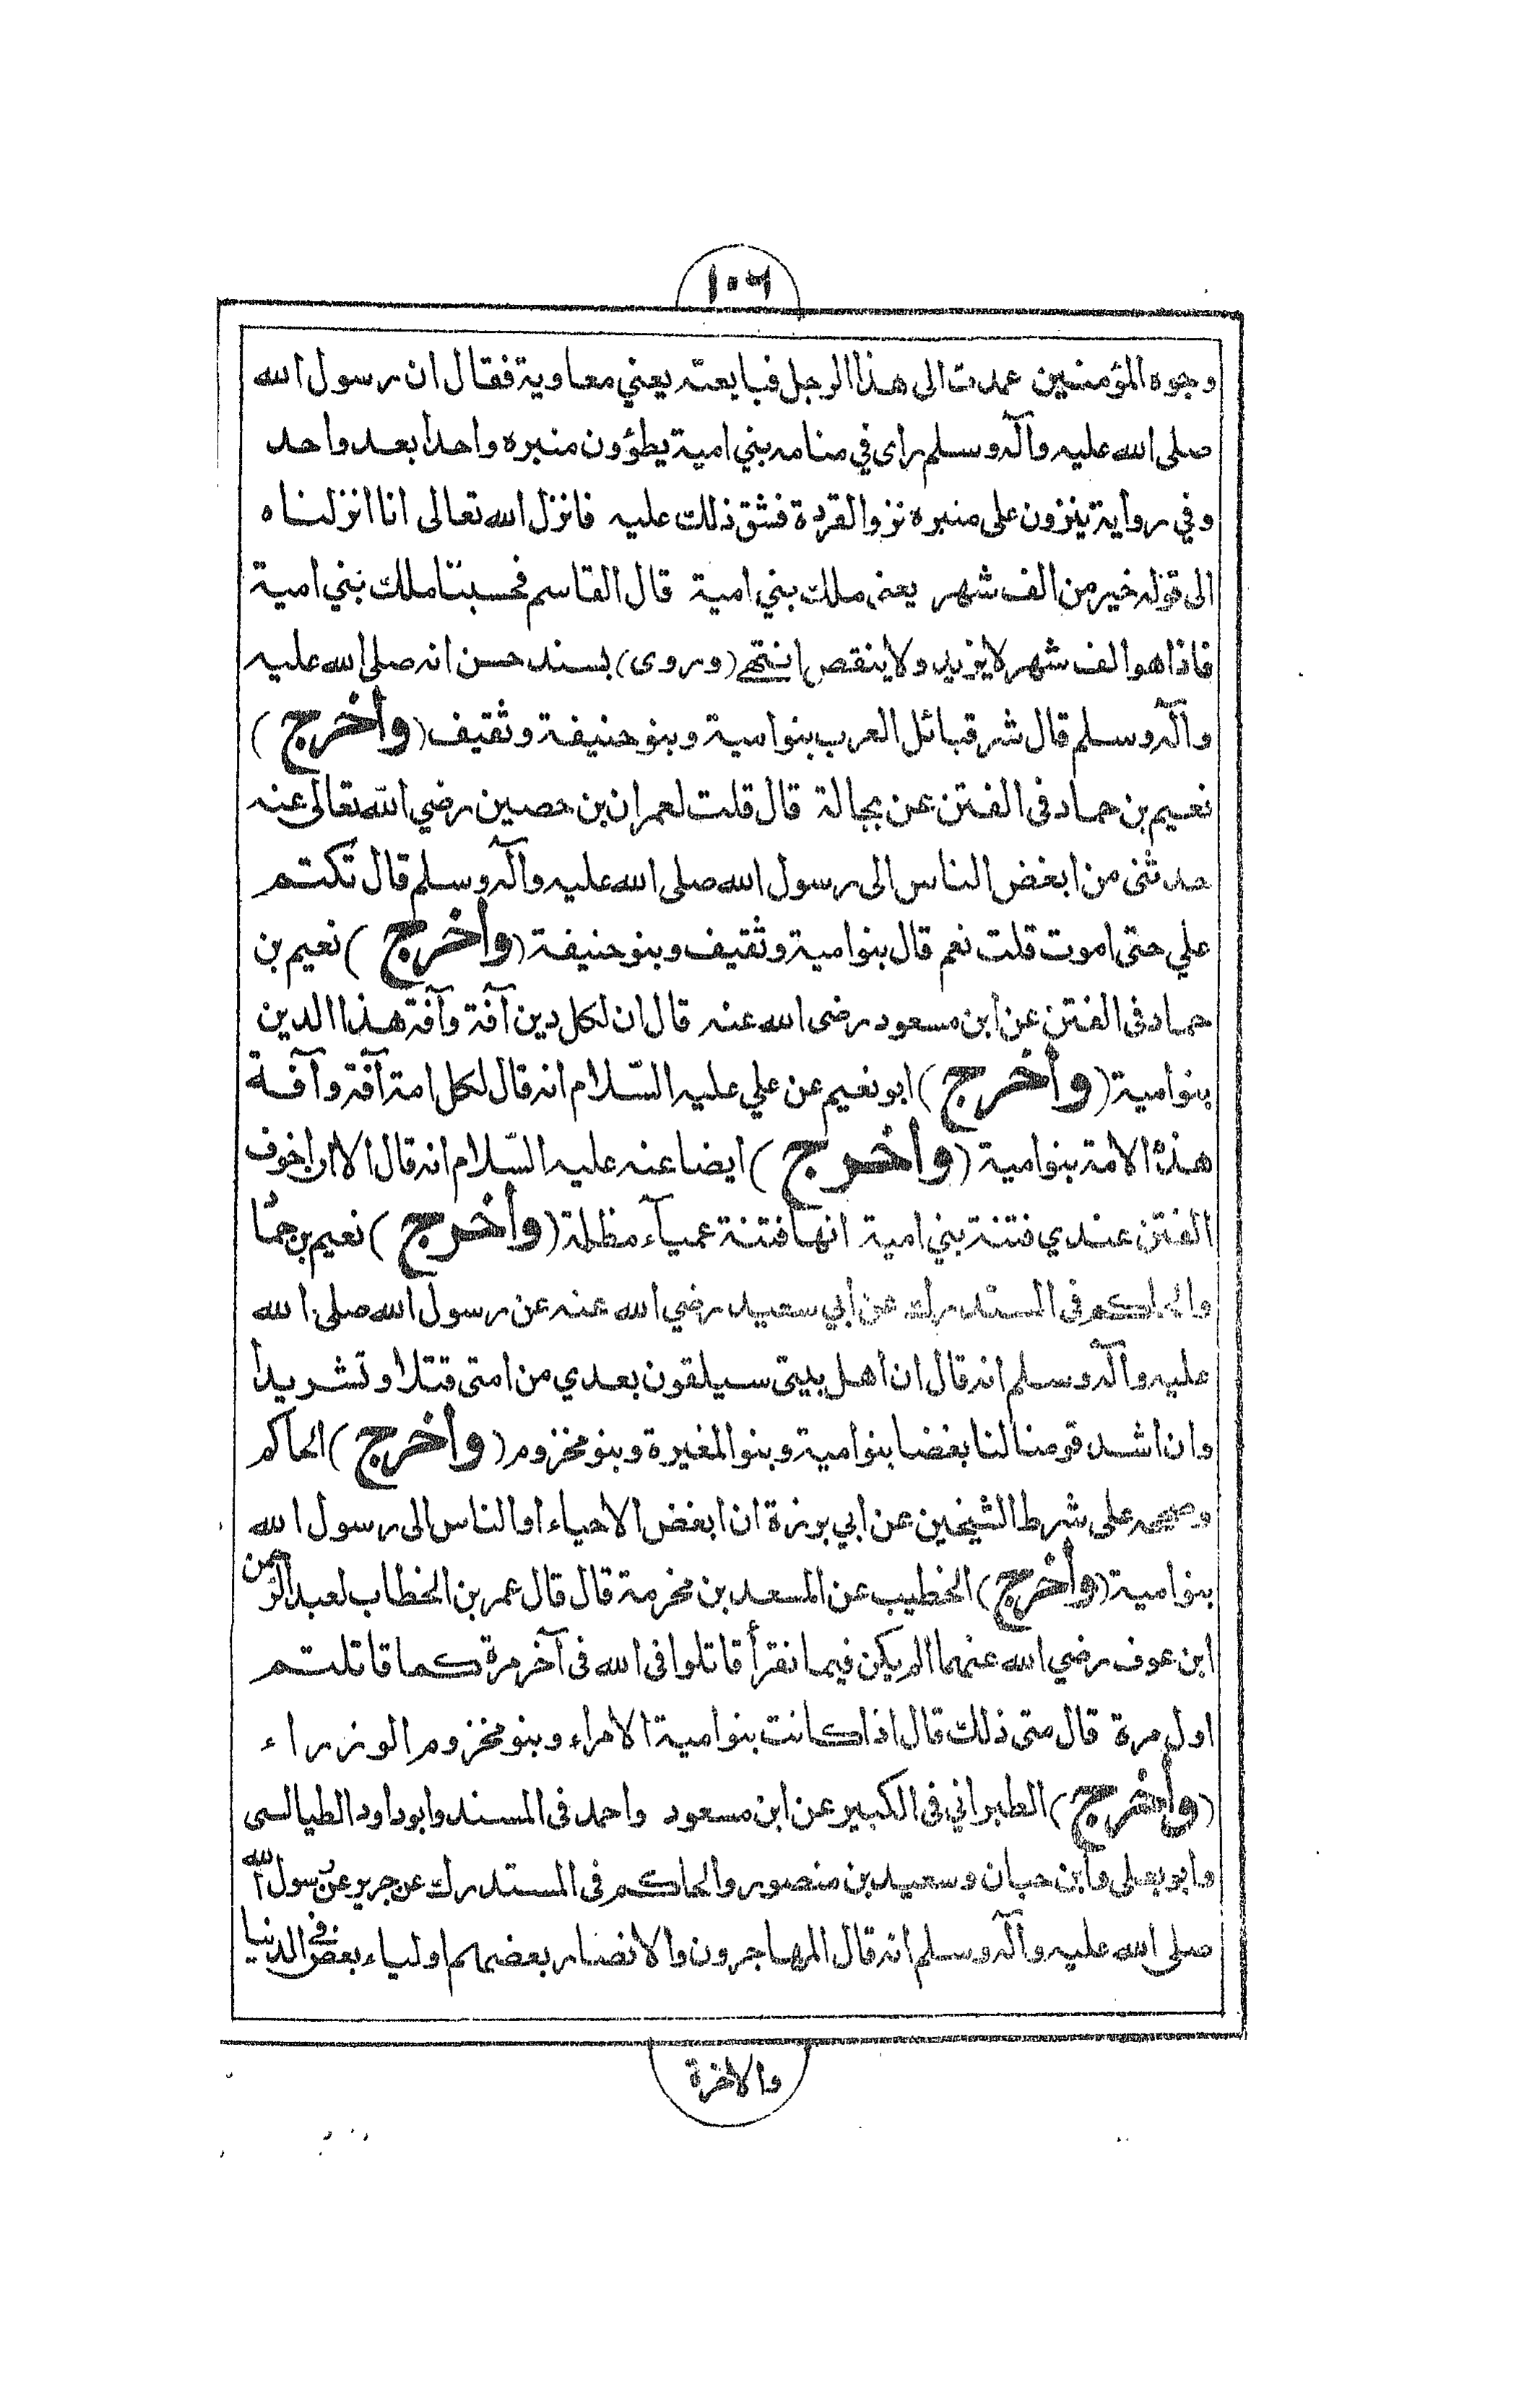 ١٠٦
وجوه المؤمنين عمدت الى هذا الرجل فبايعته يعني معاوية فقال ان رسول الله
صلى الله عليه وآله وسلم رأى في منامه بني امية يطؤون منبره واحدا بعد واحد
وفي رواية ينزون على منبره نزو القردة فشق ذلك عليه فانزل الله تعالى انا انزلناه
الى قوله خير من الف شهر يعني ملك بني امية قال القاسم فحسبنا ملك بني امية
فاذا هو الف شهر لا يزيد ولا ينقص انتهى (وروى) بسند حسن انه صلى الله عليه
وآله وسلم قال شر قبائل العرب بنو امية وبنو حنيفة وثقيف (وأخرج)
نعيم بن حماد في الفتن عن بجالة قال قلت لعمران بن حصين رضي الله تعالى عنه
حدثني من ابغض الناس الى رسول الله صلى الله عليه وآله وسلم قال تكتم
علي حتى اموت قلت نعم قال بنو امية وثقيف وبنو حنيفة (وأخرج) نعيم بن
حماد في الفتن عن ابن مسعود رضى الله عنه قال ان لكل دين آفة وآفة هذا الدين
بنو امية (وأخرج) ابو نعيم عن علي عليه السّلام انه قال لكل امة آفة وآفة
هذه الامة بنو امية (وأخرج) ايضا عنه عليه السّلام انه قال الا ان اخوف
الفتن عندي فتنة بني امية انها فتنة عمياء مظلمة (وأخرج) نعيم بن حماد
والحاكم في المستدرك عن ابي سعيد رضي الله عنه عن رسول الله صلى الله
عليه وآله وسلم انه قال ان اهل بيتى سيلقون بعدي من امتى قتلا وتشريدا
وان اشد قومنا لنا بغضا بنو امية وبنو المغيرة وبنو مخزوم (وأخرج) الحاكم
وصححه على شرط الشيخين عن ابي برزة ان ابغض الاحياء او الناس الى رسول الله
بنو امية (وأخرج) الخطيب عن المسعد بن مخرمة قال قال عمر بن الخطاب لعبد الرحمن
ابن عوف رضي الله عنهما الم يكن فيما نقرأ قاتلوا في الله في آخر مرة كما قاتلتم
اول مرة قال متى ذلك قال اذا كانت بنو امية الامراء وبنو مخزوم الوزراء
(وأخرج) الطبراني في الكبير عن ابن مسعود واحمد في المسند وابو داود الطيالسى
وابو يعلى وابن حبان وسعيد بن منصور والحاكم في المستدرك عن جرير عن رسول الله
صلى الله عليه وآله وسلم انه قال المهاجرون والانصار بعضهم اولياء بعض في الدنيا
والآخرة